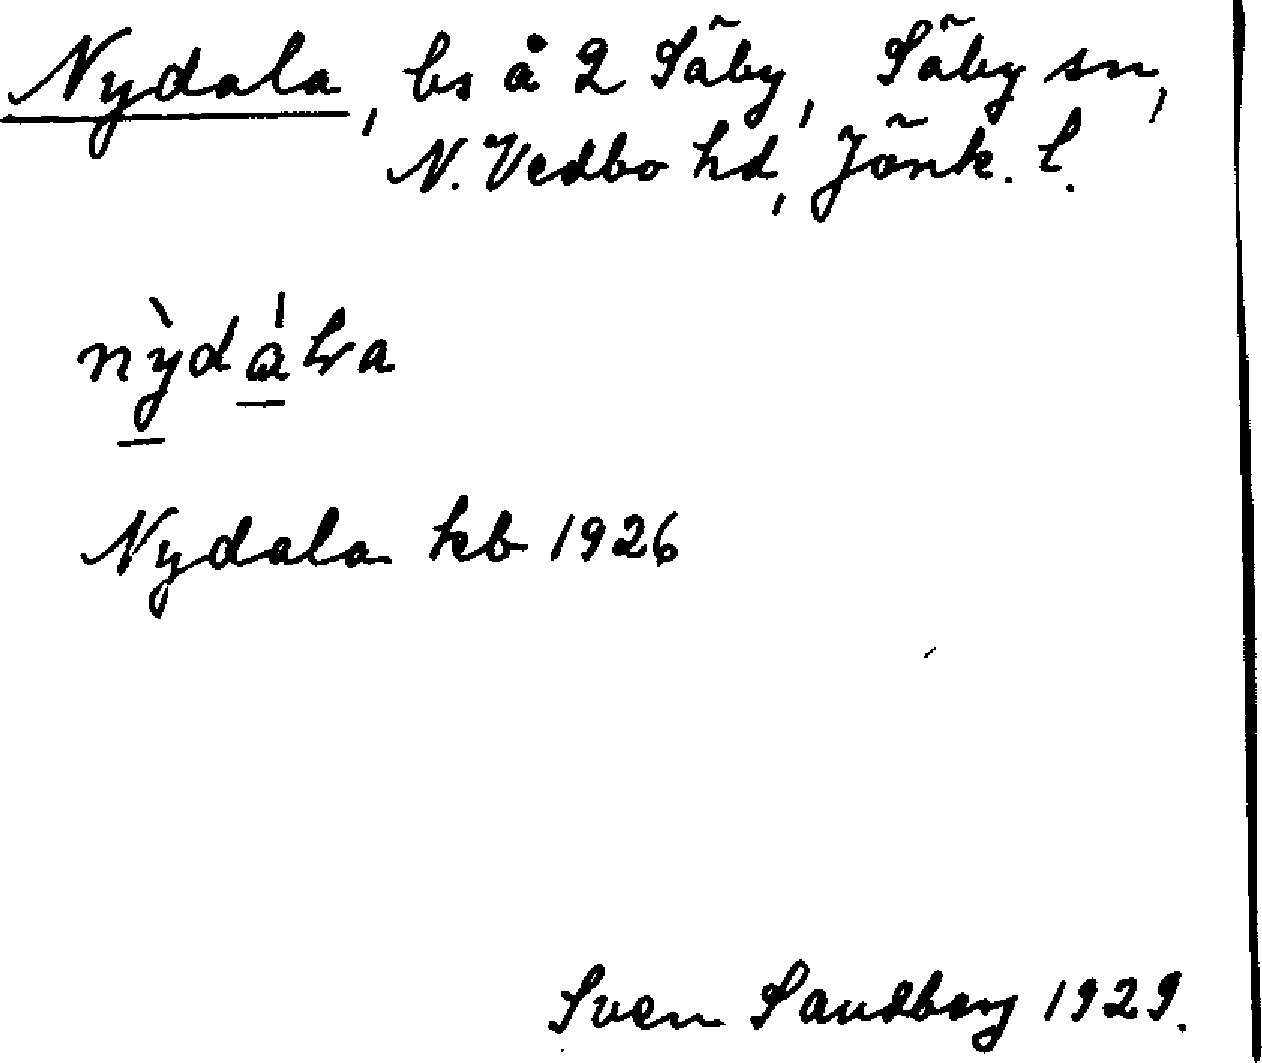 Nydala, bs å 2 Säby, Säby sn,
N. Vedbo hd, Jönk. l.
nỳdálva
Nydala kb 1926
Sven Sandberg 1929.